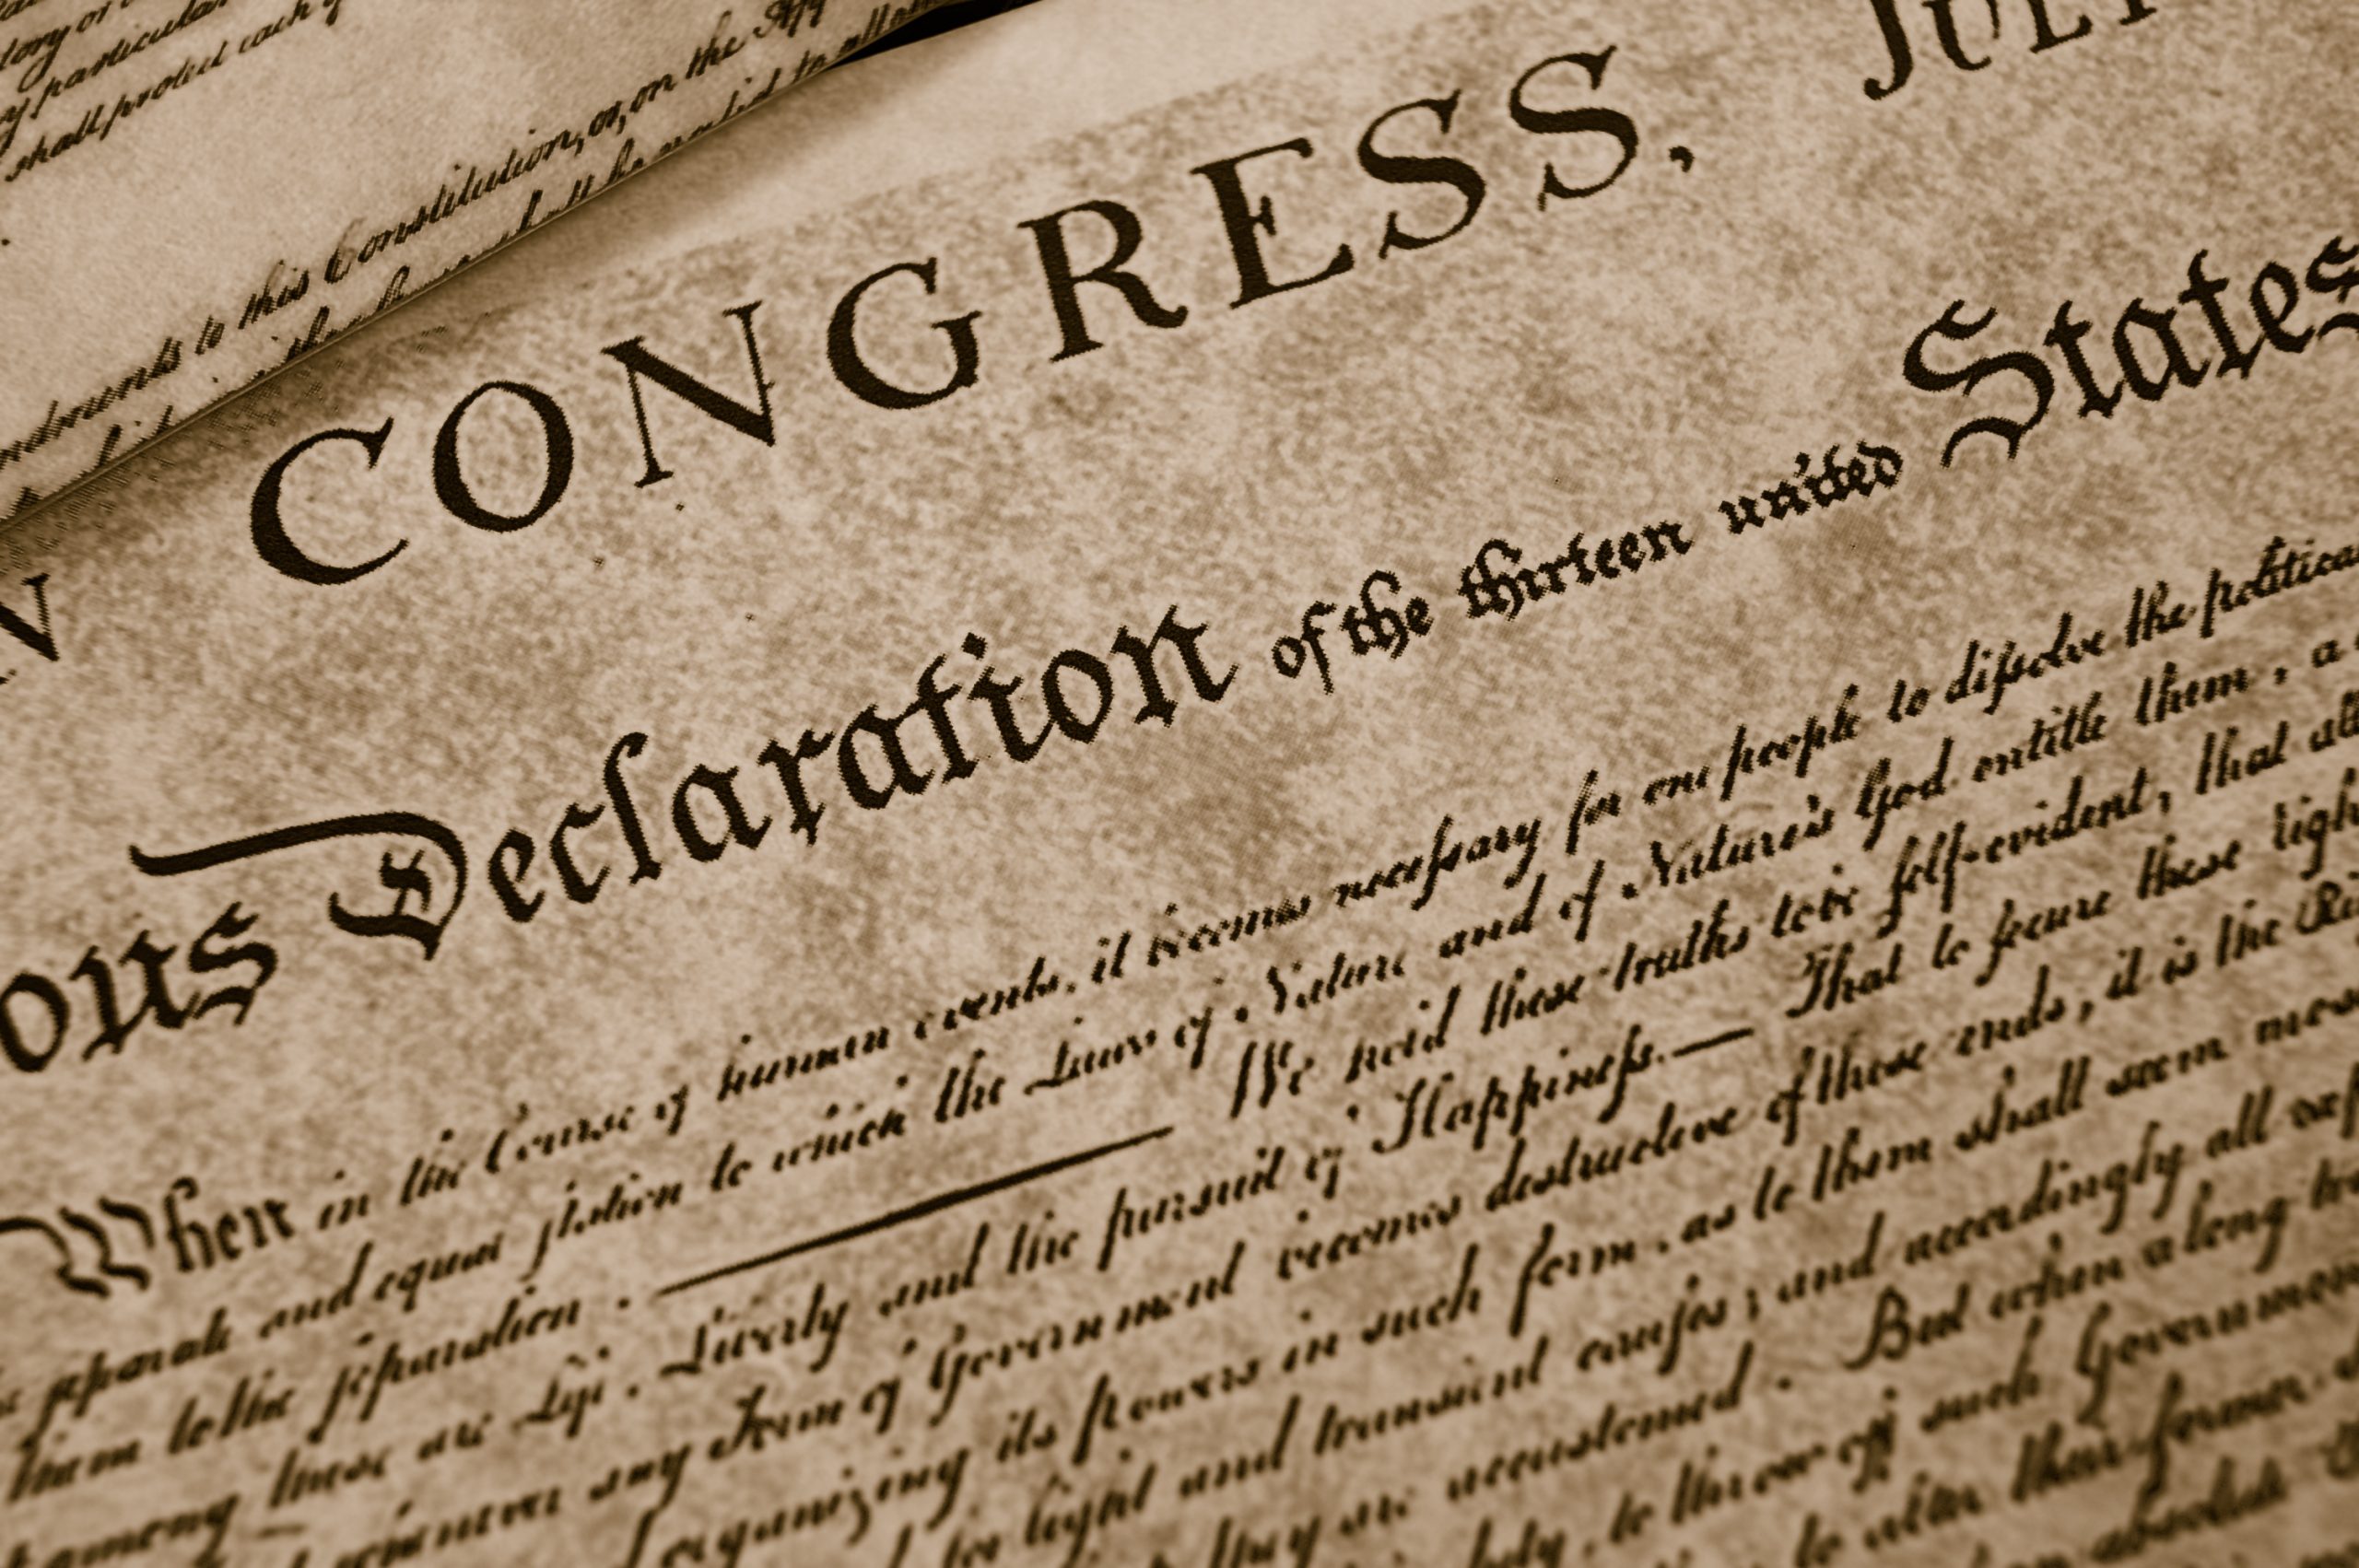 tory or
particular
shall protect each
this Constitution, or, on the App
shall be valid to all
N CONGRESS, JULY
ous Declaration of the thirteen united States
When in the Course of human events, it becomes necessary for one people to dissolve the political
separate and equal station to which the Laws of Nature and of Nature's God entitle them, a
them to the separation. — We hold these truths to be self-evident, that all
among these are Life, Liberty and the pursuit of Happiness.— That to secure these righ
whenever any Form of Government becomes destructive of these ends, it is the Ri
organizing its powers in such form, as to them shall seem mos
for light and transient causes; and accordingly all exp
they are accustomed. But when a long tra
duty, to throw off such Government
to alter their former
absolute